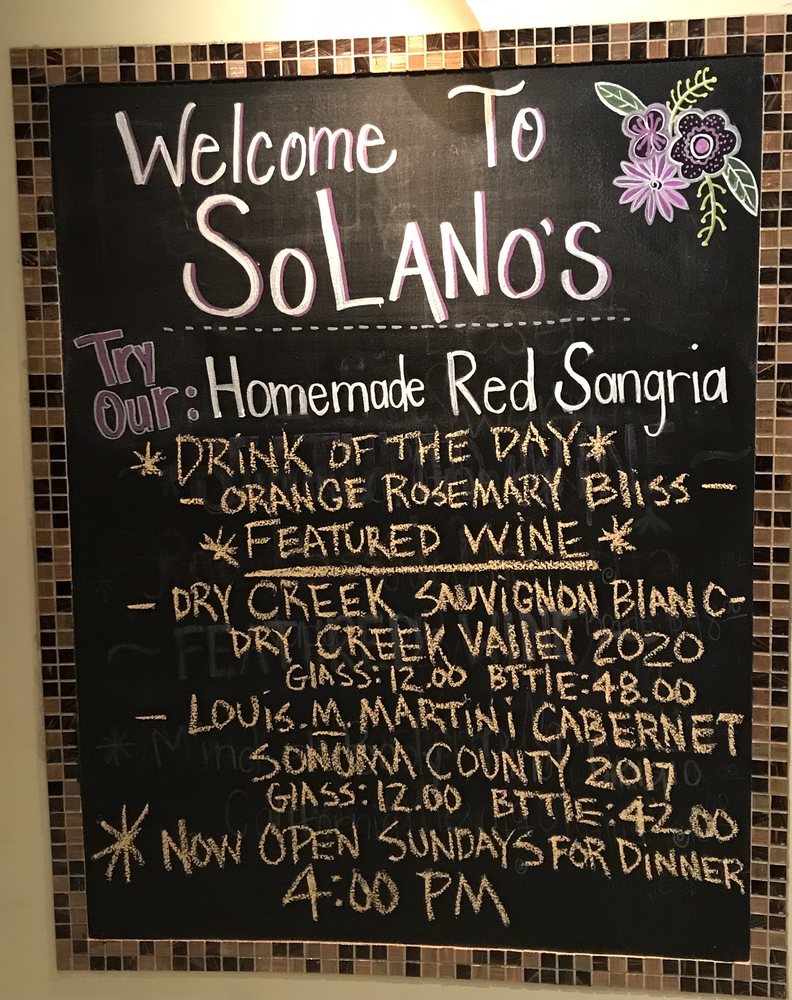 Welcome To
SOLANO'S
Try
Our: Homemade Red Sangria
* DRINK OF THE DAY *
- ORANGE ROSEMARY BLISS -
* FEATURED WINE *
- DRY CREEK SAUVIGNON BLANC-
DRY CREEK VALLEY 2020
GLASS: 12.00 BTTLE: 48.00
- LOUIS. M. MARTINI CABERNET
SONOMA COUNTY 2017
GLASS: 12.00 BTTLE: 42.00
* NOW OPEN SUNDAYS FOR DINNER
4:00 PM